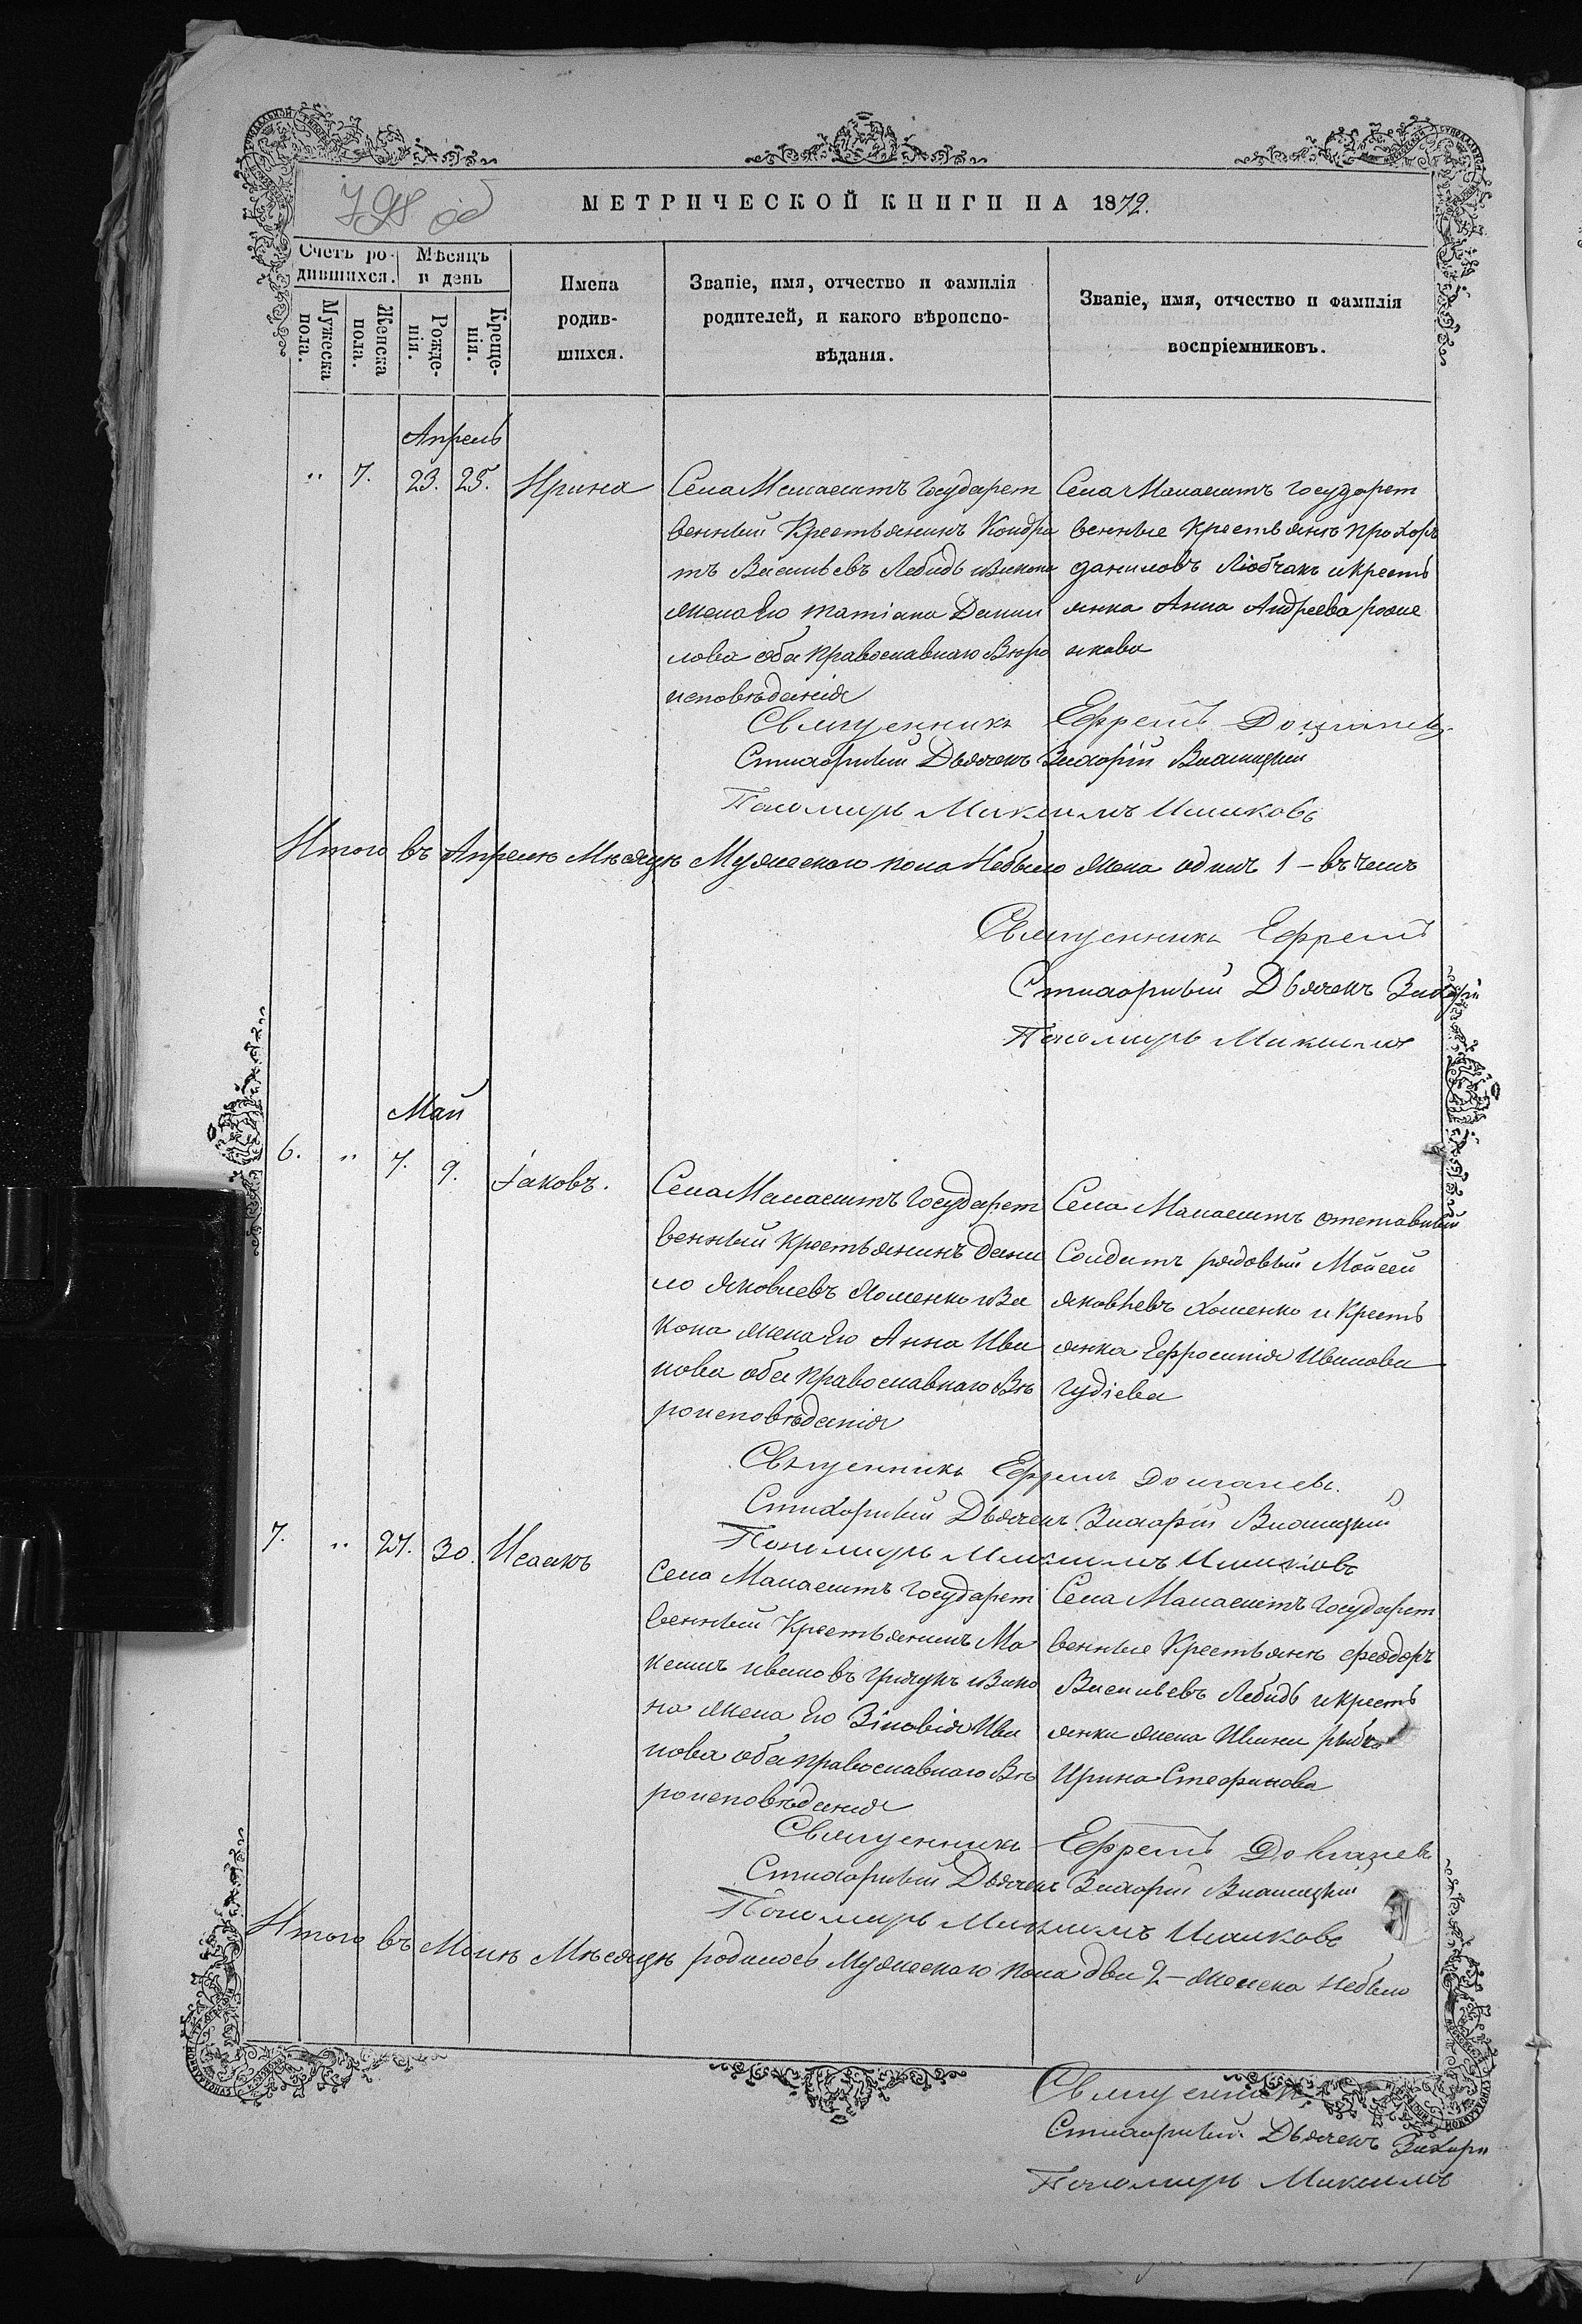 798 об
МЕТРИЧЕСКОЙ КНИГИ НА 1872.
Счетъ ро-
дившихся.
Мѣсяцъ
и день
Мужеска
пола.
Женска
пола.
Рожде-
нія.
Креще-
нія.
Имена
родив-
шихся.
Званіе, имя, отчество и фамилія
родителей, и какого вѣроиспо-
вѣданія.
Званіе, имя, отчество и фамилія
воспріемниковъ.
Апрель
" 7. 23. 25. Ирина
Села Манаештъ Государст
венный Крестьянинъ Кондра
тъ Васильевъ Лебидь и Закона
жена Его татіана Данил
лова оба православнаго Веро
исповѣданія
Села Манаештъ государст
венные Крестьянъ прохоръ
даниловъ Любчакъ и кресть
янка Анна Андреева
Священникъ Ефремъ
Стихарный Дьячекъ Захарій
Пономарь Максимъ
Итого въ Апреле Мѣсяцѣ Мужескаго пола Небыло жена одинъ 1 – въ чемъ
Священникъ Ефремъ
Стихарный Дьячекъ Захарій
Пономарь Максимъ
Май
6. " 7. 9. Іаковъ.
Села Манаештъ Государст
венный крестьянинъ дани
ло Яковлевъ Хоменко и За
кона жена Его Анна Ива
нова оба православнаго Вѣ
роисповѣданія
Села Манаештъ отставный
Солдатъ рядовый Мойсей
яковлевъ Хоменко и Кресть
янка Ефросинія Иванова
гудіева
Священникъ Ефремъ
Стихарный Дьячекъ Захарій
Пономарь Максимъ
7. " 27. 30. Исаакъ
Села Манаештъ Государст
венный Крестьянинъ Ма
ксимъ ивановъ и Зако
на жена Его Зіновія Ива
нова оба православнаго Вѣ
роисповѣданія
Села Манаештъ Государст
венные Крестьянъ феодоръ
Васильевъ Лебидь и кресть
янки жена Ивана
Ирина Стефанова
Священникъ Ефремъ
Стихарный Дьячекъ Захарій
Пономарь Максимъ
Итого въ Маиѣ Мѣсяцѣ родилось Мужескаго пола два 2 – женска небыло
Священникъ
Стихарный Дьячекъ Захари
Пономарь Максимъ